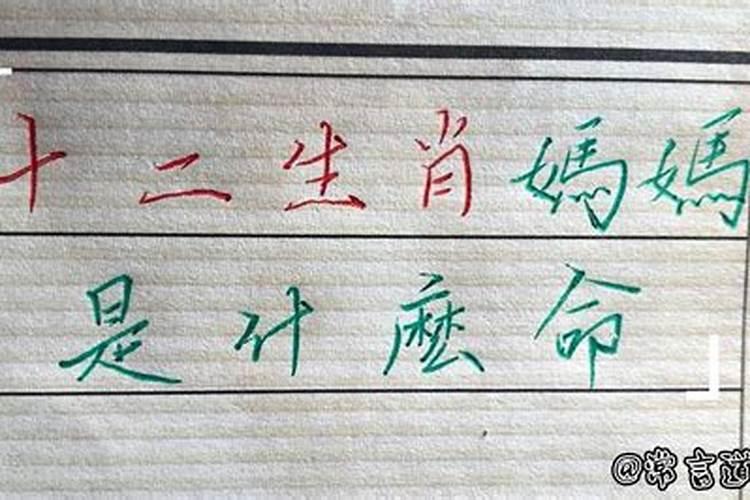 十二生肖媽媽
是什麽命
@常言道